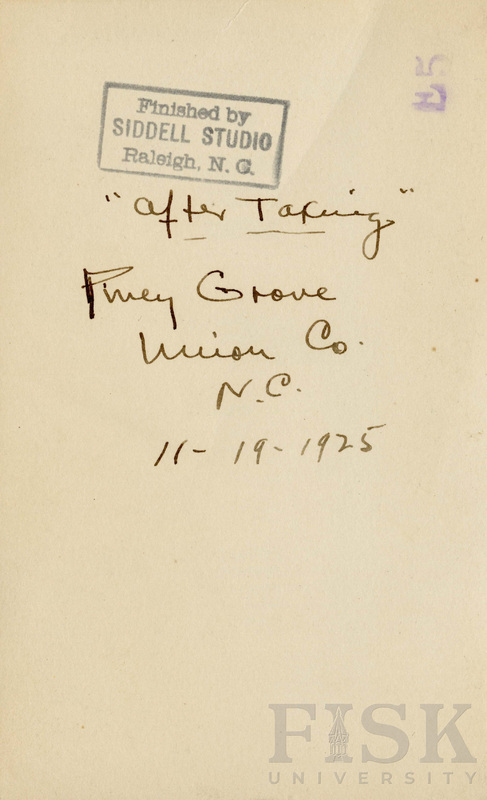 L5
Finished by
SIDDELL STUDIO
Raleigh, N. C.
"After Taking"
Piney Grove
Union Co.
N.C.
11-19-1925
FISK
UNIVERSITY